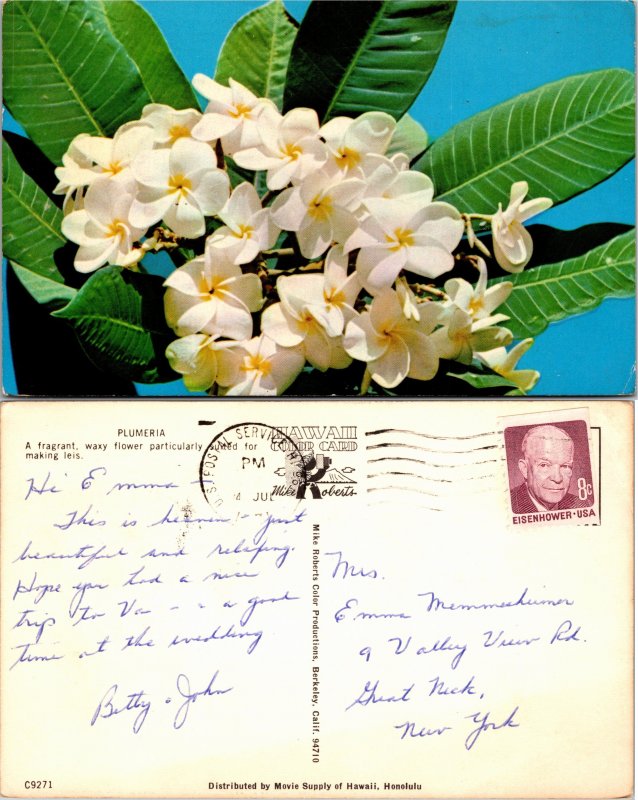 PLUMERIA
A fragrant, waxy flower particularly suited for
making leis.
U.S. POSTAL SERVICE HI
PM
4 JUL
HAWAII
COLOR CARD
Mike Roberts
8c
EISENHOWER·USA
Hi Emma -
This is heaven - just
beautiful and relaxing.
Hope you had a nice
trip to Va - - a good
time at the wedding.
Betty & John
Mike Roberts Color Productions, Berkeley, Calif. 94710
Mrs.
Emma Memmesheimer
9 Valley View Rd.
Great Neck,
New York
C9271
Distributed by Movie Supply of Hawaii, Honolulu